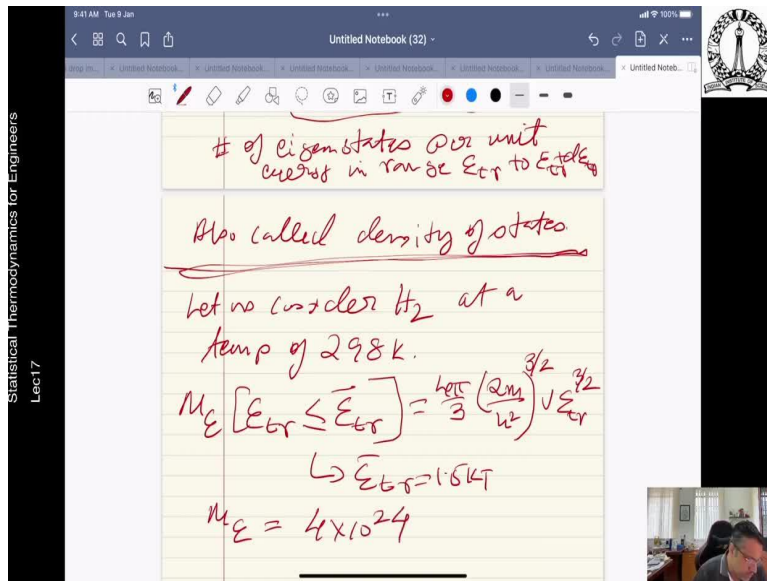 9:41 AM Tue 9 Jan
100%
Untitled Notebook (32)
Untitled Notebook...
Untitled Notebook...
Untitled Notebook...
Untitled Notebook...
Untitled Notebook...
Untitled Notebook...
Untitled Noteb...
Statistical Thermodynamics for Engineers
Lec17
# of eigenstates per unit
energy in range ε_tr to ε_tr+dε_tr
Also called density of states.
Let us consider H₂ at a
temp of 298K.
M_ε [ε_tr ≤ ε̄_tr] = 4π/3 (2m/h²)^3/2 V ε_tr^3/2
↳ ε̄_tr = 1.5kT
M_ε = 4×10^24